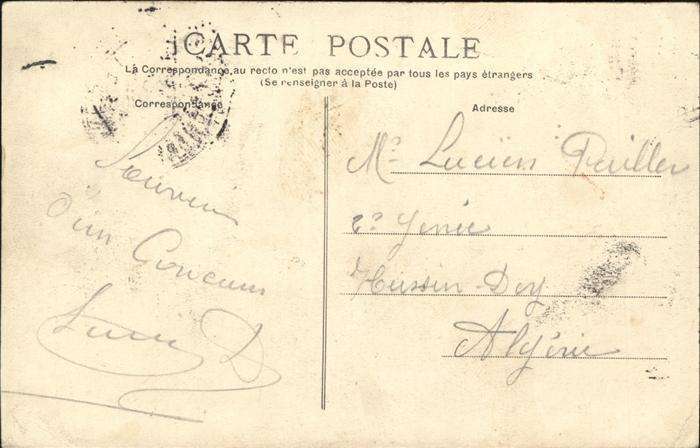 CARTE POSTALE
La Correspondance au recto n'est pas acceptée par tous les pays étrangers
(Se renseigner à la Poste)
Correspondance
Adresse
Souvenir
d'un Concours
Mr Lucien
2e Génie
Hussein-Dey
Algérie